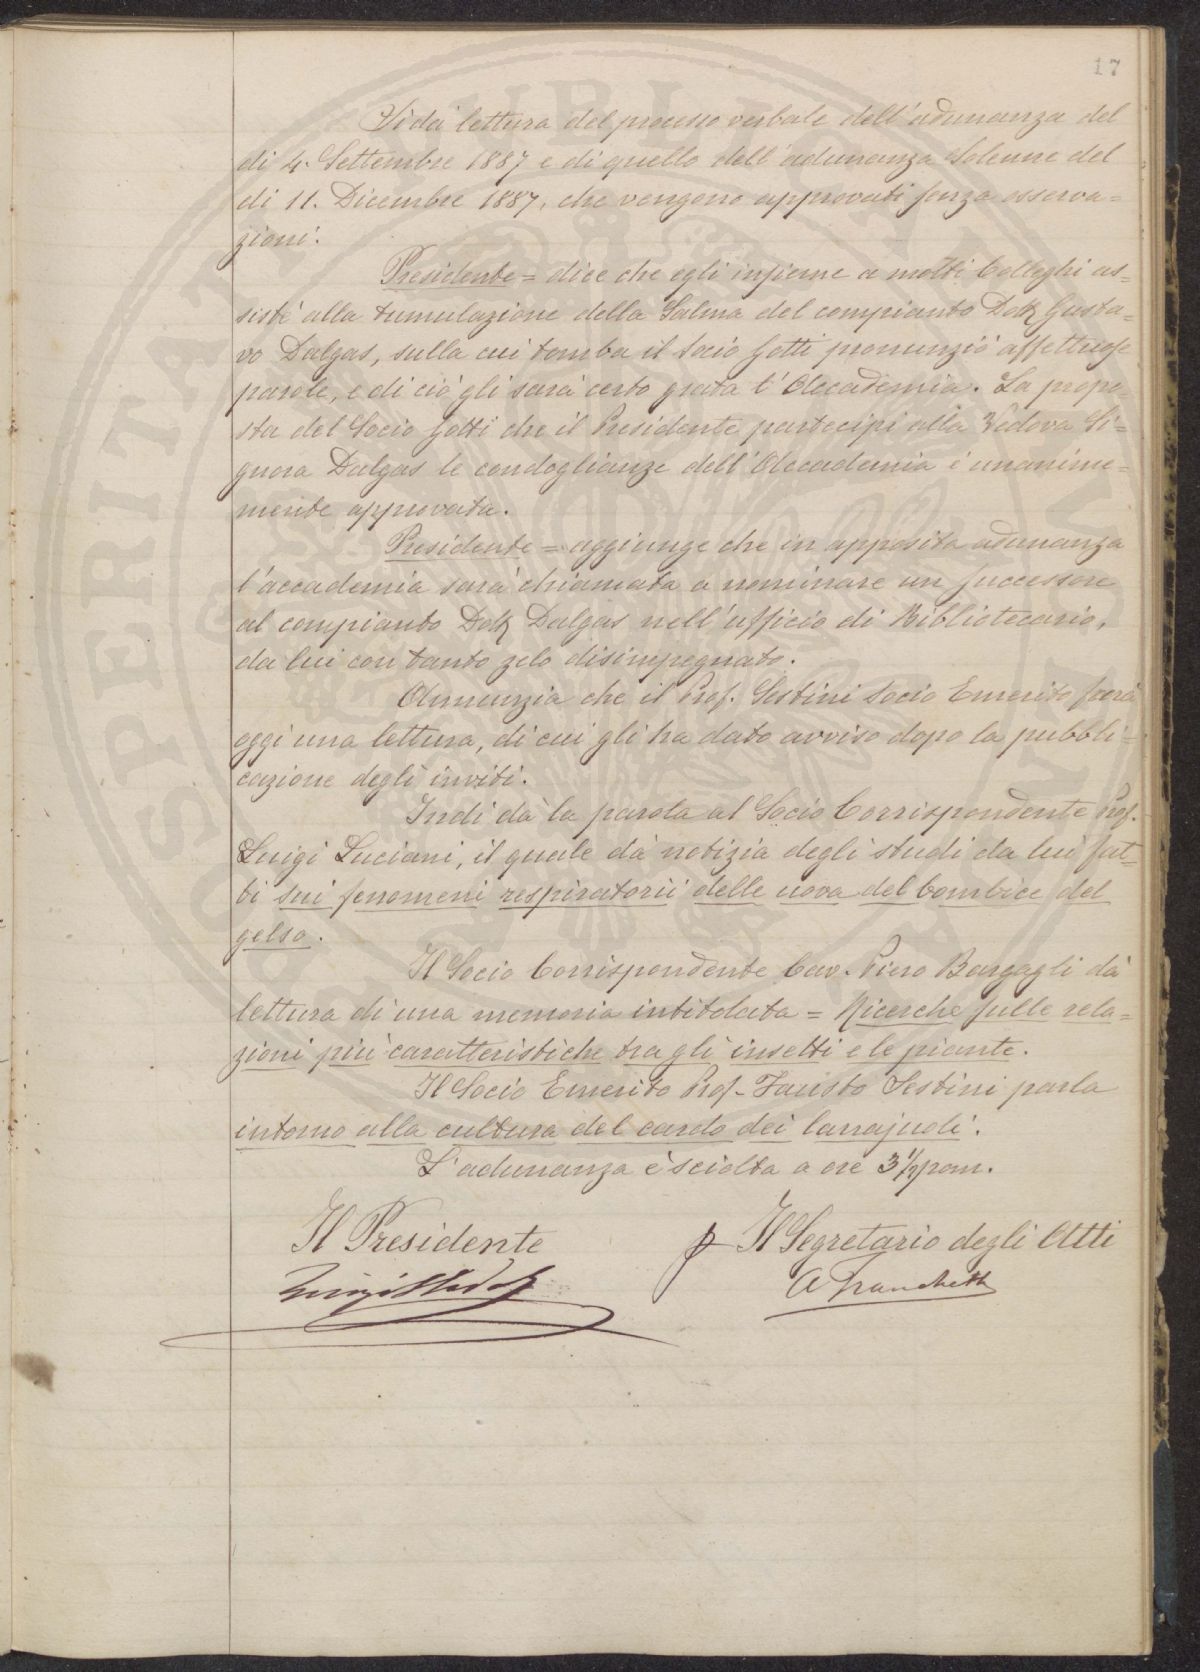 17
Si dà lettura del processo verbale dell'adunanza del
dì 4. Settembre 1887 e di quello dell'adunanza Solenne del
dì 11. Dicembre 1887, che vengono approvati senza osserva=
zioni.
Presidente = dice che egli insieme a molti Colleghi as=
sistè alla tumulazione della Salma del compianto Dott. Gusta=
vo Dalgas, sulla cui tomba il Socio Gotti pronunziò affettuose
parole, e di ciò gli sarà certo grata l'Accademia. La propo=
sta del Socio Gotti che il Presidente partecipi alla Vedova Si=
gnora Dalgas le condoglianze dell'Accademia è unanime=
mente approvata.
Presidente = aggiunge che in apposita adunanza
l'accademia sarà chiamata a nominare un successore
al compianto Dott. Dalgas nell'ufficio di Bibliotecario,
da lui con tanto zelo disimpegnato.
Annunzia che il Prof. Sestini Socio Emerito farà
oggi una lettura, di cui gli ha dato avviso dopo la pubbli=
cazione degli inviti.
Indi dà la parola al Socio Corrispondente Prof.
Luigi Luciani, il quale dà notizia degli studi da lui fat=
ti sui fenomeni respiratorii delle uova del bombice del
gelso.
Il Socio Corrispondente Cav. Piero Bargagli dà
lettura di una memoria intitolata = Ricerche sulle rela=
zioni più caratteristiche tra gli insetti e le piante.
Il Socio Emerito Prof. Fausto Sestini parla
intorno alla cultura del cardo dei lanajuoli.
L'adunanza è sciolta a ore 3 1/2 pom.
Il Presidente
p Il Segretario degli Atti
A Franchetti
PROSPERITATI PUBLICAE